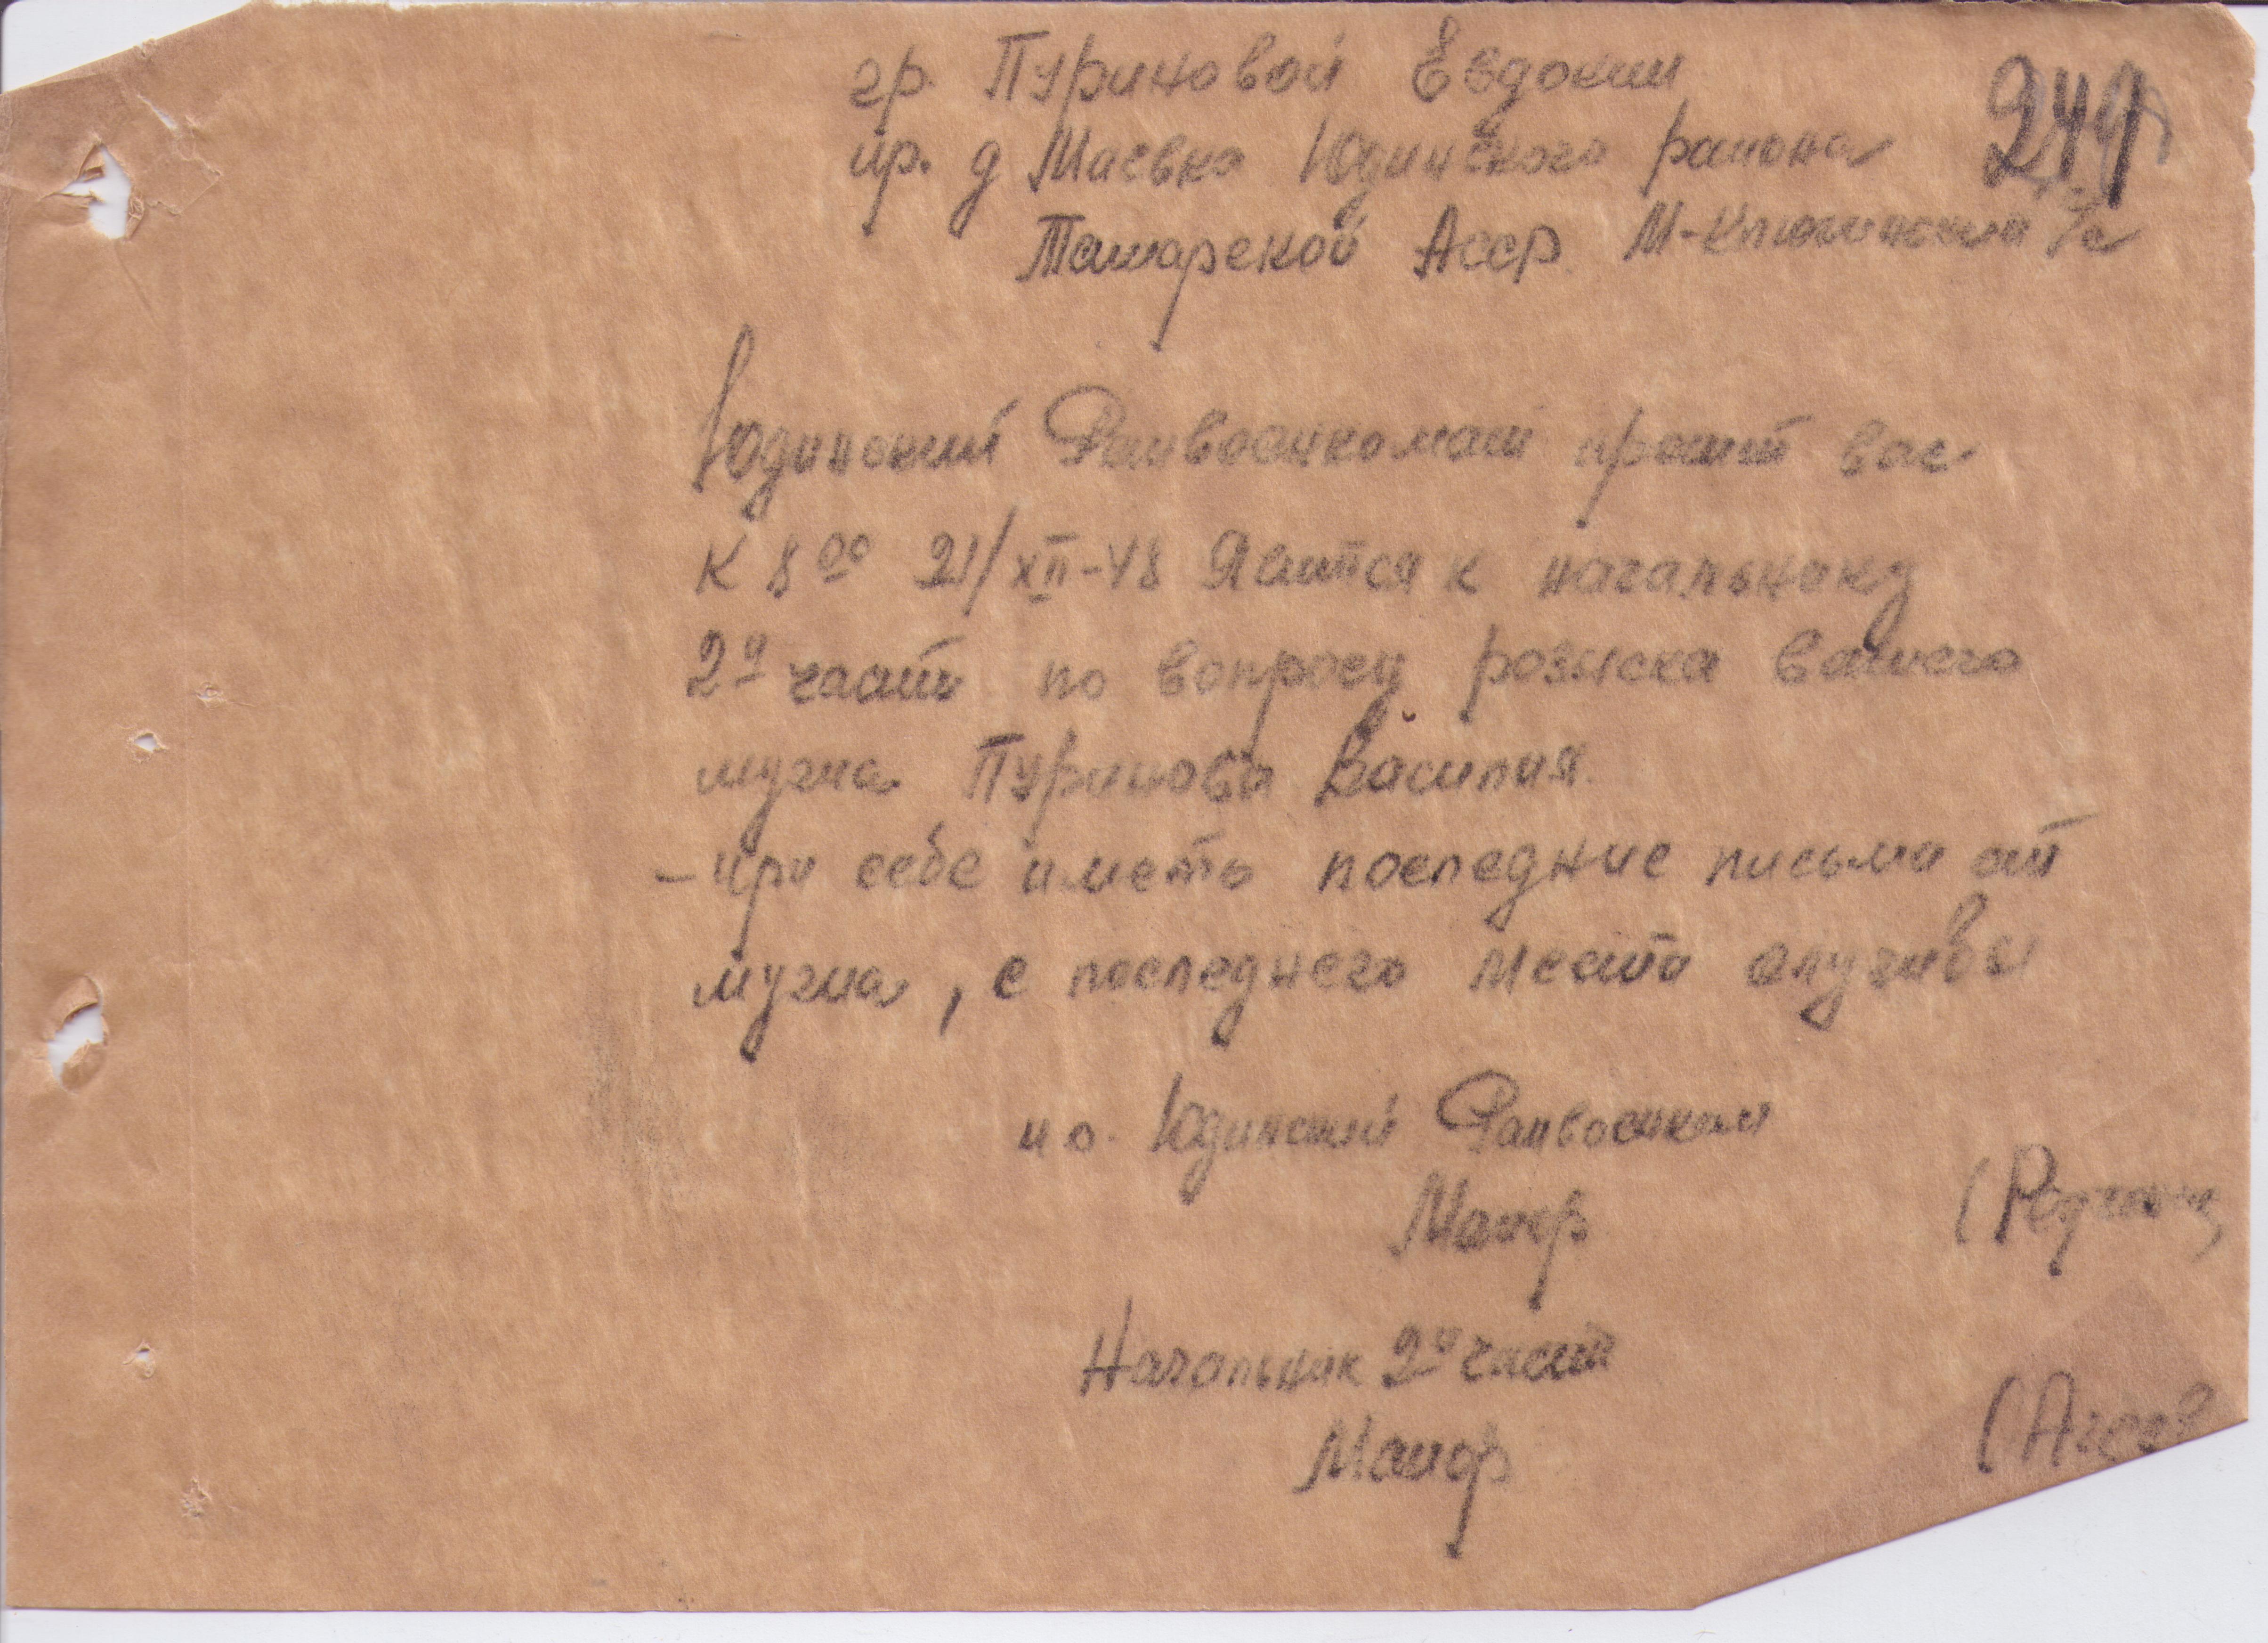 гр. Пуриновой Евдокии
пр. д Маевка Юдинского района
Татарской Асср. М-Ключинский с/с
Юдинский Райвоенкомат просит вас
К 8 00 21/XII-48 Явится к начальнику
2й части по вопросу розиска вашего
мужа Пуринова Василия.
- при себе иметь последние письма от
мужа, с последнего места службы
и о. Юдинский Райвоенком
Маиор
Начальник 2й части
Маиор (Агеев